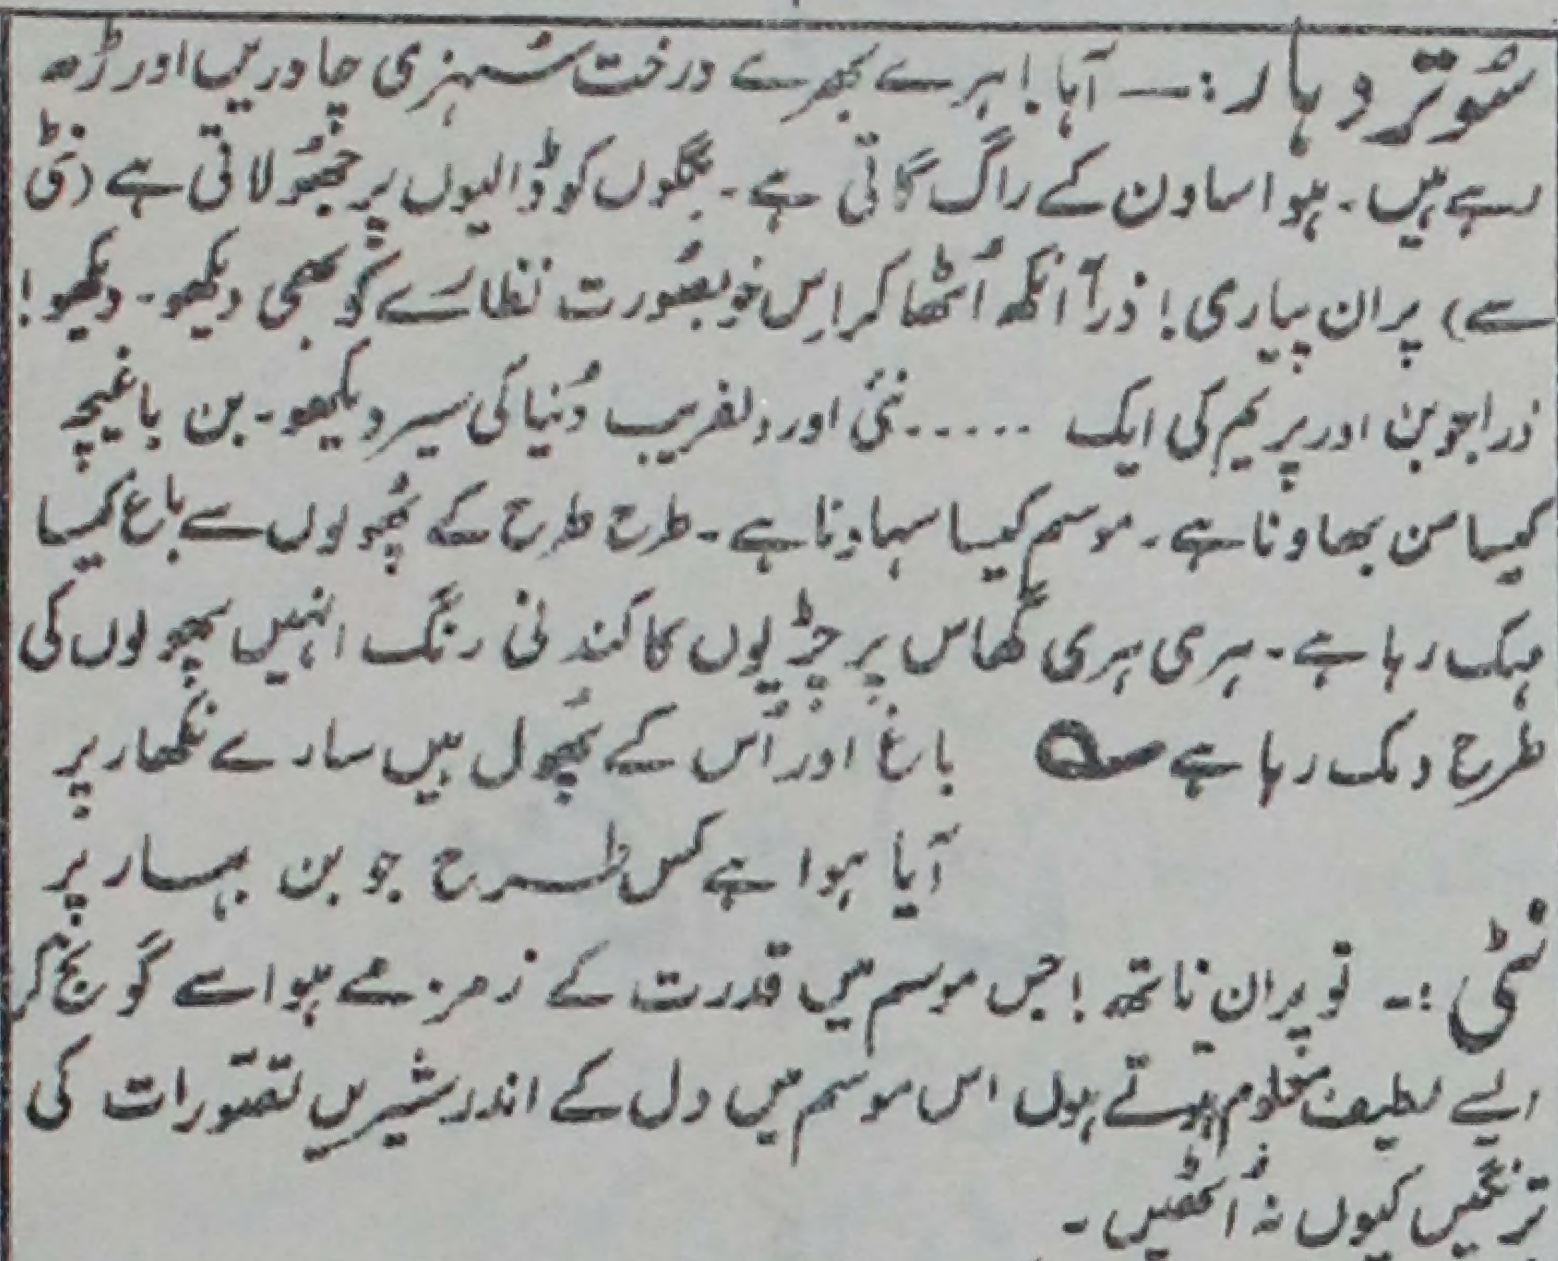 سُوتر دہار:— آہا! ہرے بھرے درخت سُنہری چادریں اوڑھ
رہے ہیں۔ ہوا ساون کے راگ گاتی ہے۔ بگلوں کو ڈالیوں پر جُھولاتی ہے (نٹی
سے) پران پیاری! ذرا آنکھ اُٹھا کر اِس خوبصُورت نظارے کو بھی دیکھو۔ دیکھو!
ذرا جوبن اور پریم کی ایک ..... نئی اور دلفریب دُنیا کی سیر دیکھو۔ بن باغیچہ
کیسا من بھاونا ہے۔ موسم کیسا سہاونا ہے۔ طرح طرح کے پُھولوں سے باغ کیسا
مہک رہا ہے۔ ہری ہری گھاس پر چڑیوں کا کندنی رنگ انہیں پھولوں کی
طرح دمک رہا ہے ؎ باغ اور اُس کے پُھول ہیں سارے نکھار پر
آیا ہوا ہے کس طرح جوبن بہار پر
نٹی:۔ تو پران ناتھ! جس موسم میں قدرت کے زمزمے ہوا سے گونج کر
ایسے لطیف معلوم ہوتے ہوں اس موسم میں دل کے اندر شیریں تصوّرات کی
ترنگیں کیوں نہ اُٹھیں۔